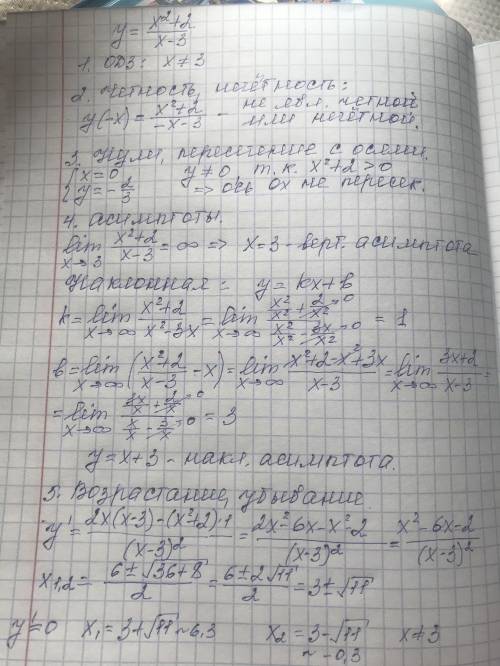 y = (x²+2)/(x-3)
1. ОДЗ: x ≠ 3
2. Четность, нечётность:
y(-x) = (x²+2)/(-x-3) - не явл. четной или нечётной.
3. Нули, пересечение с осями.
{ x=0   y≠0 т.к. x²+2>0
{ y=-2/3   => ось ох не пересек.
4. асимптоты.
lim x→3 (x²+2)/(x-3) = ∞ => x=3 - верт. асимптота
Наклонная: y = kx+b
k = lim x→∞ (x²+2)/(x²-3x) = lim x→∞ (x²/x² + 2/x² →0)/(x²/x² - 3x/x² →0) = 1
b = lim x→∞ ((x²+2)/(x-3) - x) = lim x→∞ (x²+2-x²+3x)/(x-3) = lim x→∞ (3x+2)/(x-3) =
= lim x→∞ (3x/x + 2/x →0)/(x/x - 3/x →0) = 3
y = x+3 - накл. асимптота.
5. Возрастание, убывание.
y' = (2x(x-3)-(x²+2)·1)/(x-3)² = (2x²-6x-x²-2)/(x-3)² = (x²-6x-2)/(x-3)²
x₁,₂ = (6±√36+8)/2 = (6±2√11)/2 = 3±√11
y'=0   x₁=3+√11 ~ 6,3   x₂=3-√11   x≠3
~ -0,3